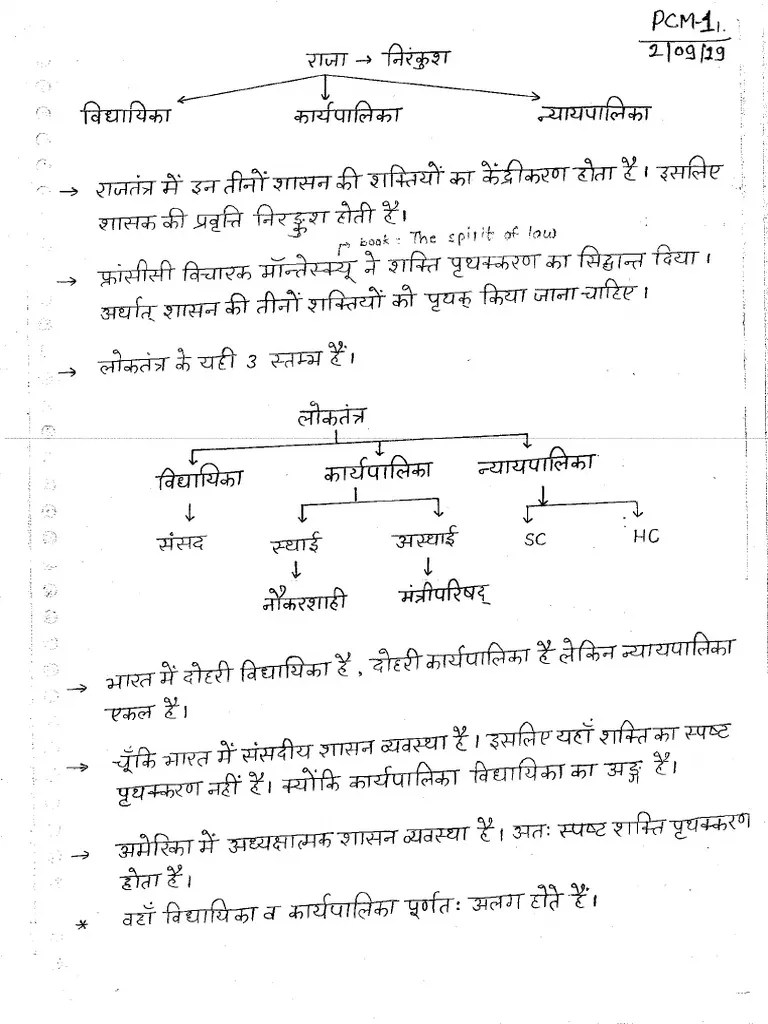 PCM-1.
2/09/19
राजा → निरंकुश
विधायिका कार्यपालिका न्यायपालिका
→ राजतंत्र में इन तीनों शासन की शक्तियों का केंद्रीकरण होता है। इसलिए
शासक की प्रवृत्ति निरङ्कुश होती है।
→ book: The spirit of law
→ फ्रांसीसी विचारक मॉन्तेस्क्यू ने शक्ति पृथक्करण का सिद्धान्त दिया।
अर्थात् शासन की तीनों शक्तियों को पृथक् किया जाना चाहिए।
→ लोकतंत्र के यही 3 स्तम्भ हैं।
लोकतंत्र
विधायिका कार्यपालिका न्यायपालिका
संसद स्थाई अस्थाई SC HC
नौकरशाही मंत्रीपरिषद्
→ भारत में दोहरी विधायिका है, दोहरी कार्यपालिका है लेकिन न्यायपालिका
एकल है।
→ चूँकि भारत में संसदीय शासन व्यवस्था है। इसलिए यहाँ शक्ति का स्पष्ट
पृथक्करण नहीं है। क्योंकि कार्यपालिका विधायिका का अङ्ग है।
→ अमेरिका में अध्यक्षात्मक शासन व्यवस्था है। अतः स्पष्ट शक्ति पृथक्करण
होता है।
* वहाँ विधायिका व कार्यपालिका पूर्णतः अलग होते हैं।